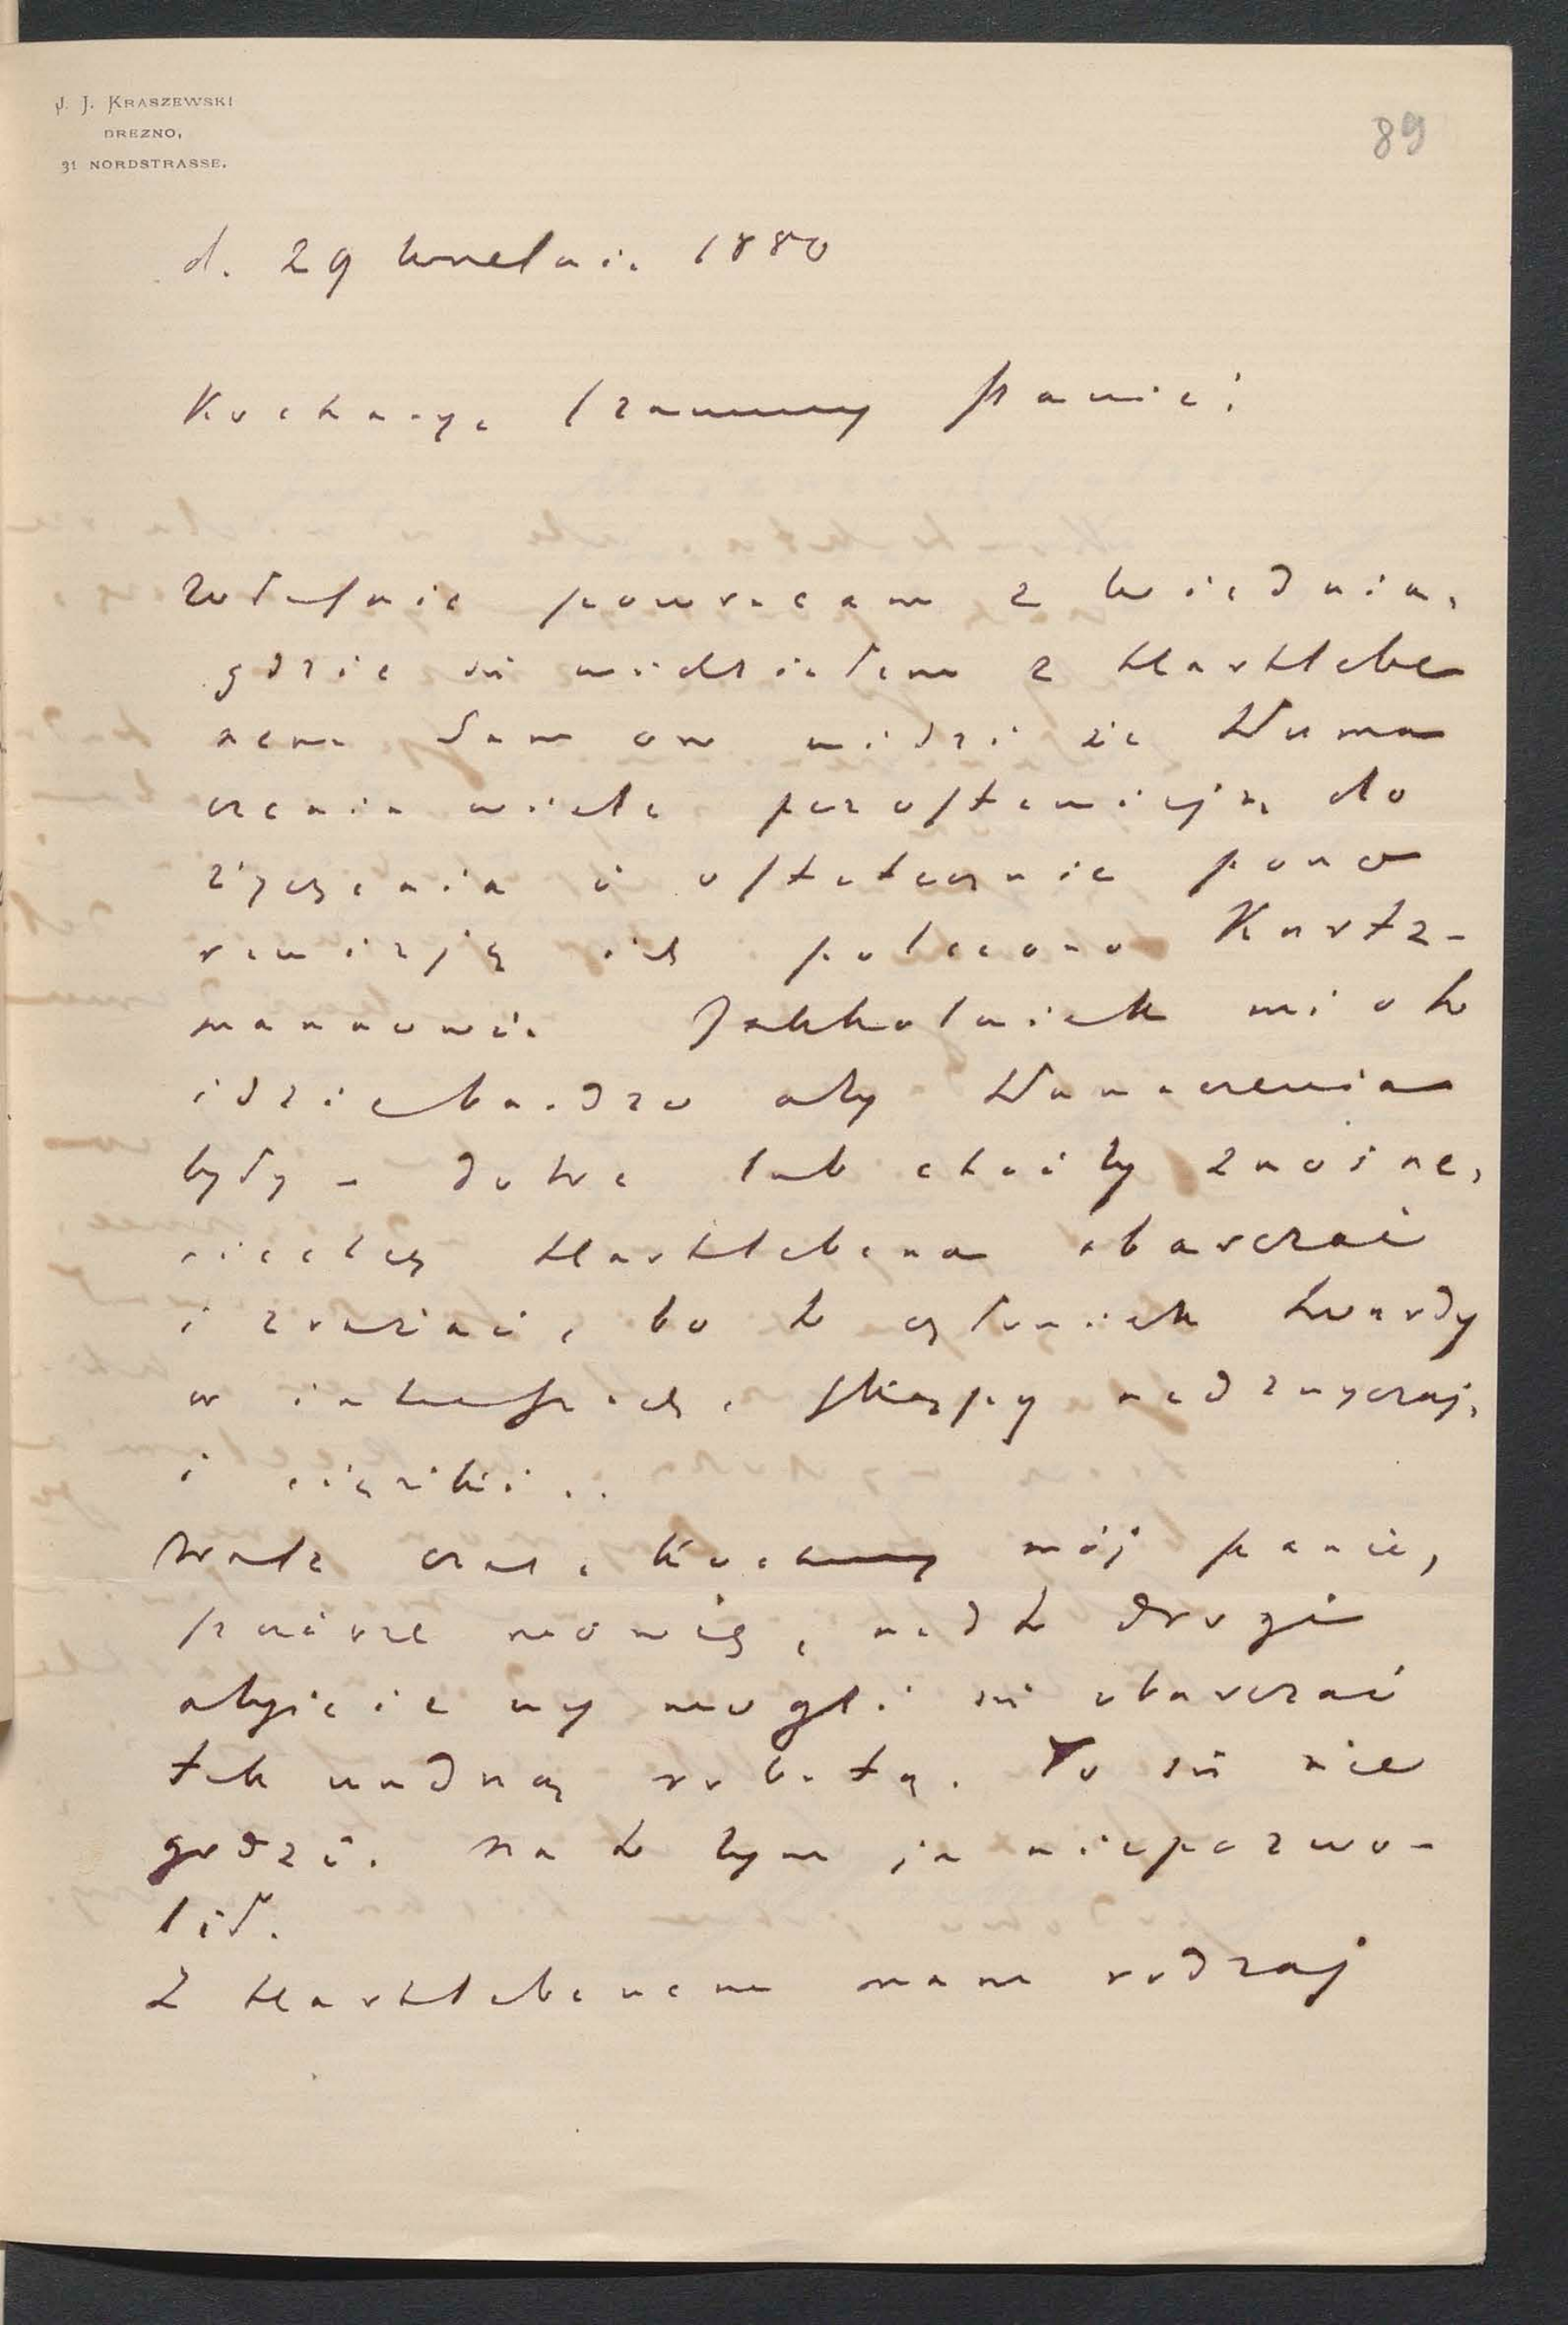 J. J. KRASZEWSKI
DREZNO,
31 NORDSTRASSE.
89
d. 29 kwietnia 1880
Kochany, Szanowny Panie!
Właśnie powracam z Wiednia,
gdzie się widziałem z Hartlebe
nem Sam on widzi że tłuma
czenia wiele pozostawiają do
życzenia i ostatecznie pono
rewizją ich polecono Kurtz-
mannowi. Jakkolwiek mi o to
idzie bardzo aby tłumaczenia
były – dobre lub choćby znośne,
niechcę Hartlebena obarczać
i zrażać, bo to człowiek twardy
w interesach, skąpy nadzwyczaj,
i ciężki..
Wasz czas, kochany mój panie,
szczerze mówię, nadto drogi
abyście wy mogli się obarczać
tak nudną robotą. To się nie
godzi. Na to bym ja niepozwo-
lił.
Z Hartlebenem mam rodzaj